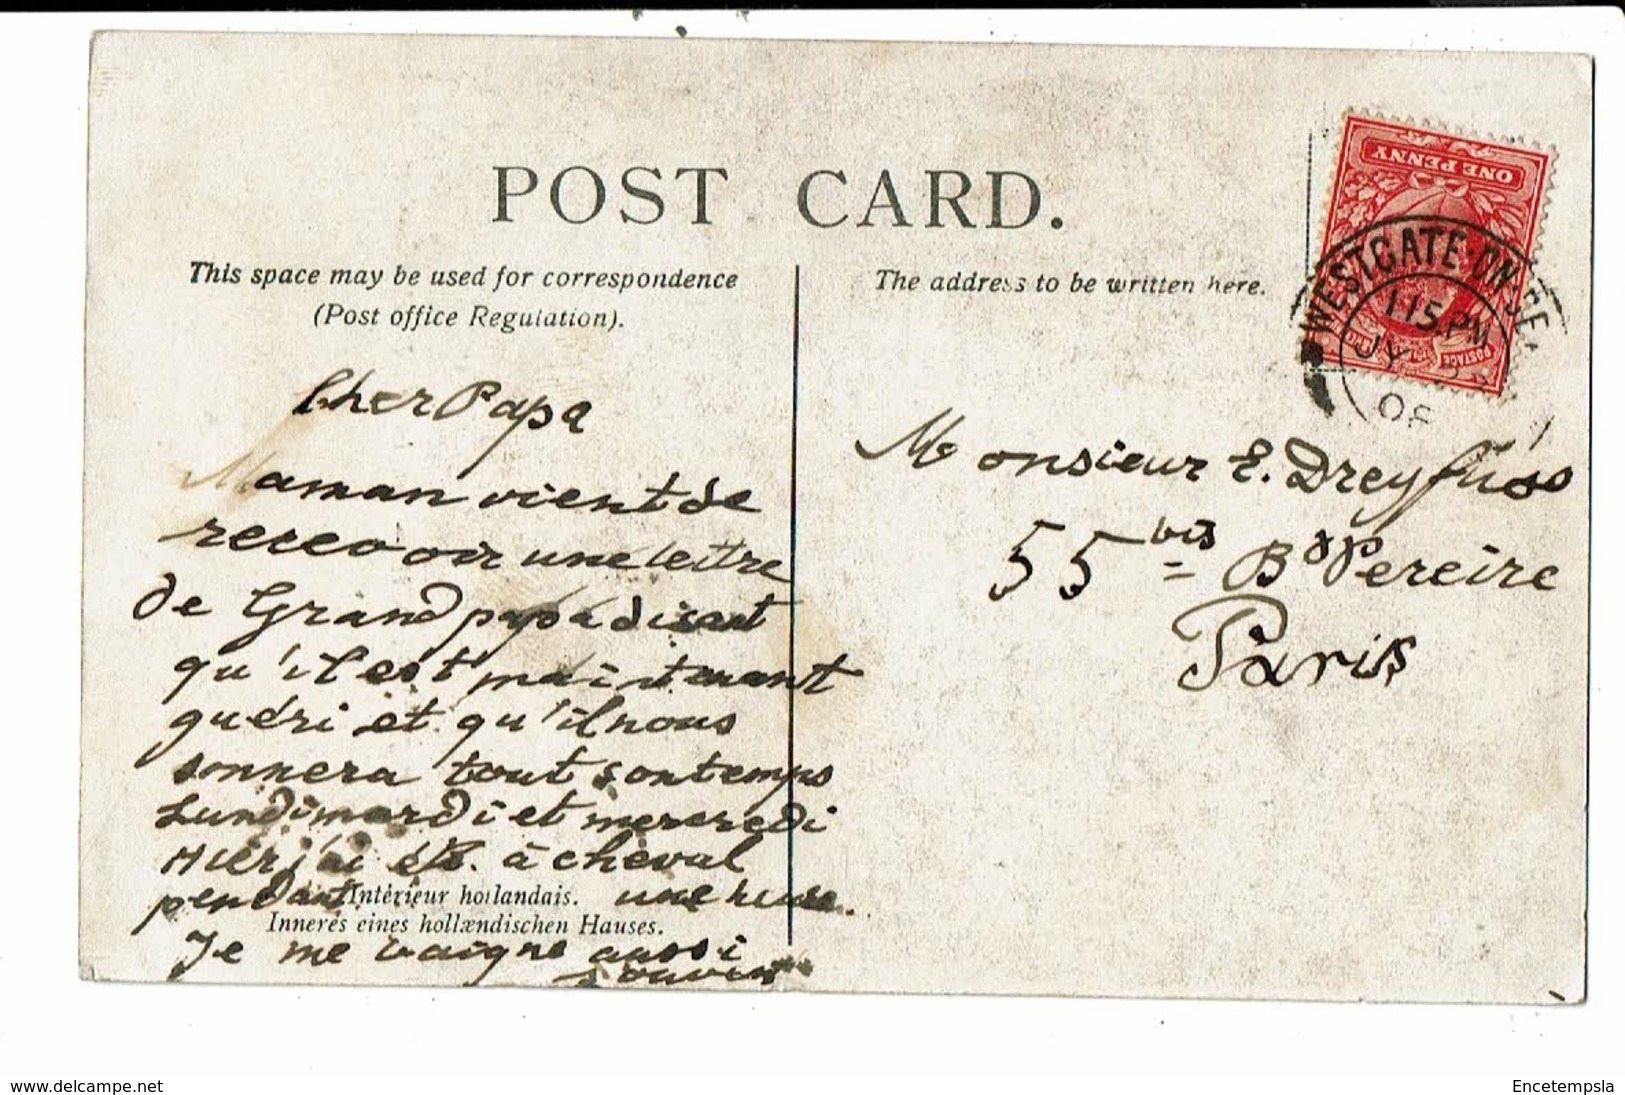 POST CARD.
This space may be used for correspondence
(Post office Regulation).
The address to be written here.
ONE PENNY
POSTAGE
WESTGATE·ON·SE
115PM
JY
08
Cher Papa
Maman vient de
recevoir une lettre
de Grand papa disant
qu'il est maintenant
guéri et qu'il nous
donnera tout son temps
Lundi mardi et mercredi
Hier j'ai été à cheval
pendant une heure.
Intérieur hollandais.
Inneres eines hollændischen Hauses.
Je me baigne aussi
souvent
Monsieur E. Dreyfuss
55 bis Bd Pereire
Paris
www.delcampe.net
Encetempsla